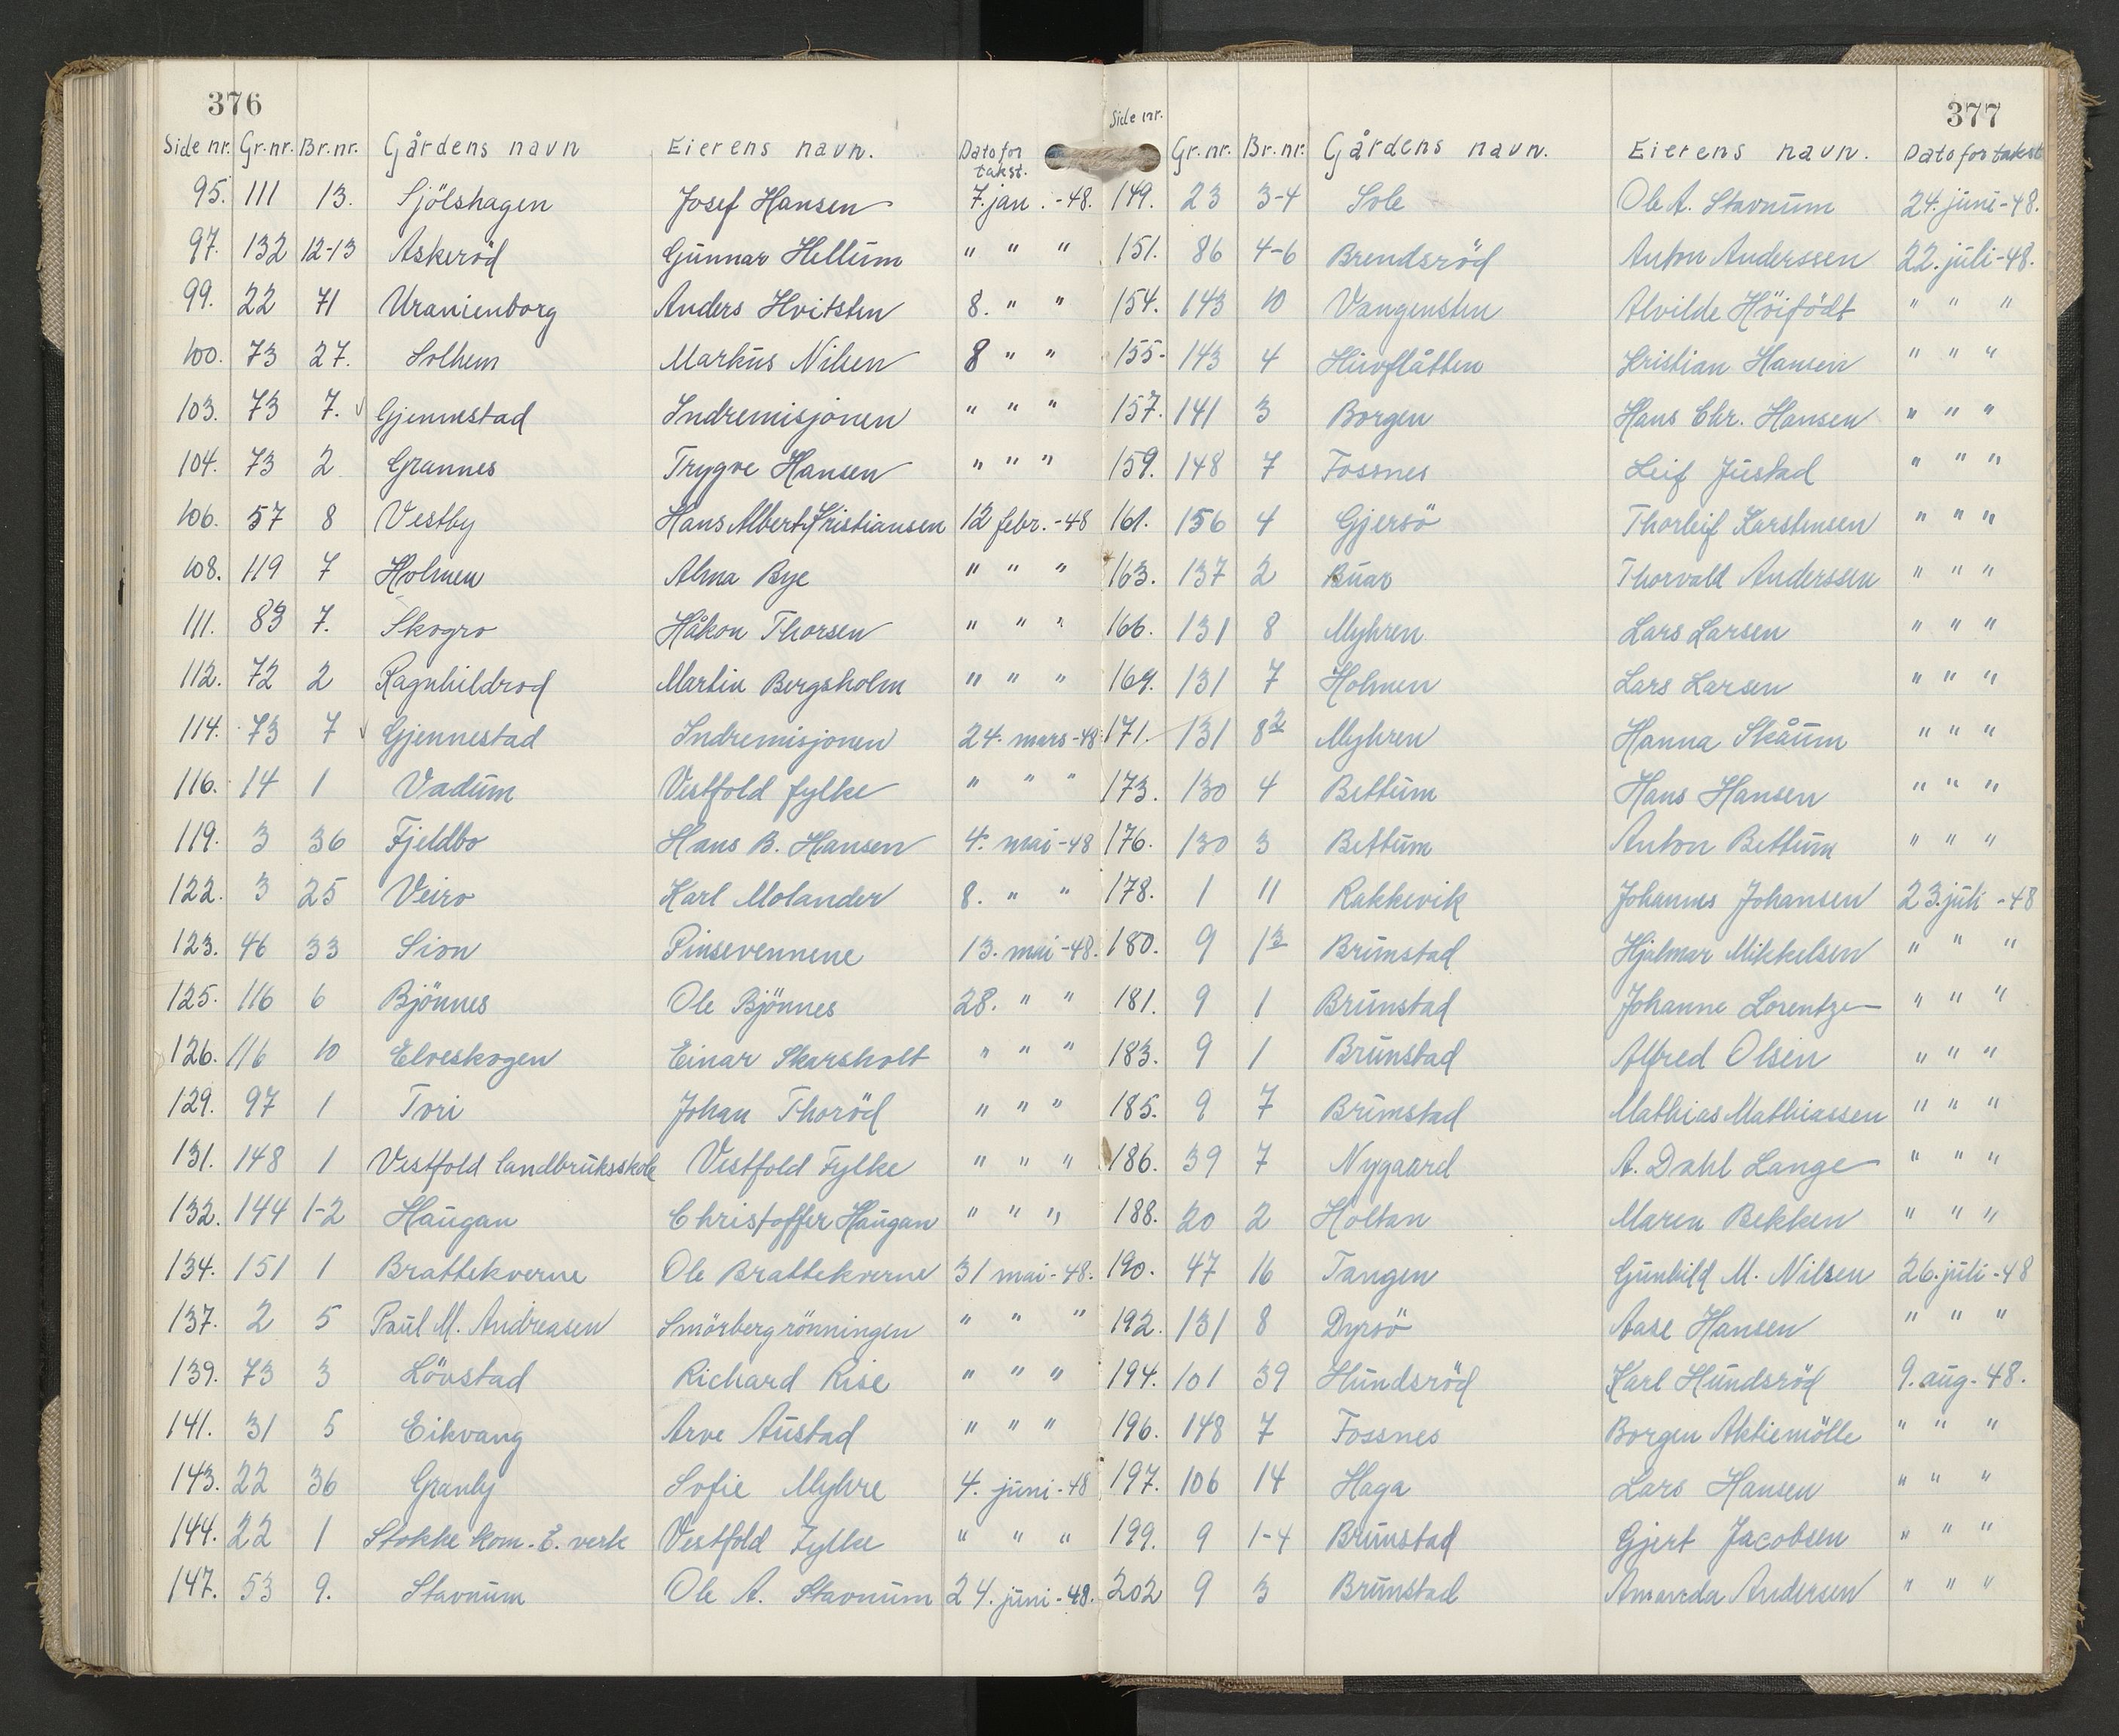 376
Side nr. Gr.nr. Br.nr. Gårdens navn Eierens navn. Dato for takst.
95. 111 13. Sjölshagen Josef Hansen 7. jan. -48.
97. 132 12-13 Askeröd Gunnar Hellum " " "
99. 22 71 Uranienborg Anders Hvitsten 8. " "
100. 73 27. Solhem Markus Nilsen 8 " "
103. 73 7. Gjennestad Indremisjonen " " "
104. 73 2 Grannes Trygve Hansen " " "
106. 57 8 Vestby Hans Albert Kristiansen 12 febr. -48
108. 119 7 Holmen Alma Bye " " "
111. 83 7. Skogro Håkon Thorsen " " "
112. 72 2 Ragnhildrod Martin Bergsholm " " "
114. 73 7 Gjennestad Indremisjonen 24. mars -48
116. 14 1 Vadum Vestfold fylke " " "
119. 3 36 Fjeldbo Hans B. Hansen 4. mai -48
122. 3 25 Veiro Karl Molander 8. " "
123. 46 33 Sion Pinsevennene 13. mai -48.
125. 116 6 Bjönnes Ole Bjönnes 28. " "
126. 116 10 Elveskogen Einar Skarsholt " " "
129. 97 1 Tori Johan Thoröd " " "
131. 148 1 Vestfold landbruksskole Vestfold Fylke " " "
132. 144 1-2 Haugan Christoffer Haugan " " "
134. 151 1 Brattekverne Ole Brattekverne 31 mai -48.
137. 2 5 Paul M. Andreasen Smörbergrönningen " " "
139. 73 3 Lövstad Richard Rise " " "
141. 31 5 Eikvang Arve Austad " " "
143. 22 36 Granly Sofie Myhre 4. juni -48
144. 22 1 Stokke kom. E. verk Vestfold Fylke " " "
147. 53 9. Stavnum Ole A. Stavnum 24. juni -48.
377
Side nr. Gr.nr. Br.nr. Gårdens navn. Eierens navn. Dato for takst
149. 23 3-4 Sole Ole A. Stavnum 24. juni -48.
151. 86 4-6 Brendsröd Anton Anderssen 22. juli -48.
154. 143 10 Vangensten Alvilde Höifödt " " "
155. 143 4 Kristian Hansen " " "
157. 141 3 Borgen Hans Chr. Hansen " " "
159. 148 7 Fossnes Leif Justad " " "
161. 156 4 Gjersö Thorleif Karstensen " " "
163. 137 2 Buar Thorvald Anderssen " " "
166. 131 8 Myhren Lars Larsen " " "
169. 131 7 Holmen Lars Larsen " " "
171. 131 8 2 Myhren Hanna Skåum " " "
173. 130 4 Bettum Hans Hansen " " "
176. 130 3 Bettum Anton Bettum " " "
178. 1 11 Rakkevik Johannes Johansen 23. juli -48
180. 9 1 3 Brunstad Hjalmar Mikkelsen " " "
181. 9 1 Brunstad Johanne Lorentze " " "
183. 9 1 Brunstad Alfred Olsen " " "
185. 9 7 Brunstad Mathias Mathiassen " " "
186. 39 7 Nygaard A. Dahl Lange " " "
188. 20 2 Holtan Maren Bekken " " "
190. 47 16 Tangen Gunhild M. Nilsen 26. juli -48
192. 131 8 Dyrsö Aase Hansen " " "
194. 101 39 Hundsröd Karl Hundsröd 9. aug. 48.
196. 148 7 Fossnes Borgen Aktiemölle " " "
197. 106 14 Haga Lars Hansen " " "
199. 9 1-4 Brunstad Gjert Jacobsen " " "
202 9 3 Brunstad Amanda Andersen " " "